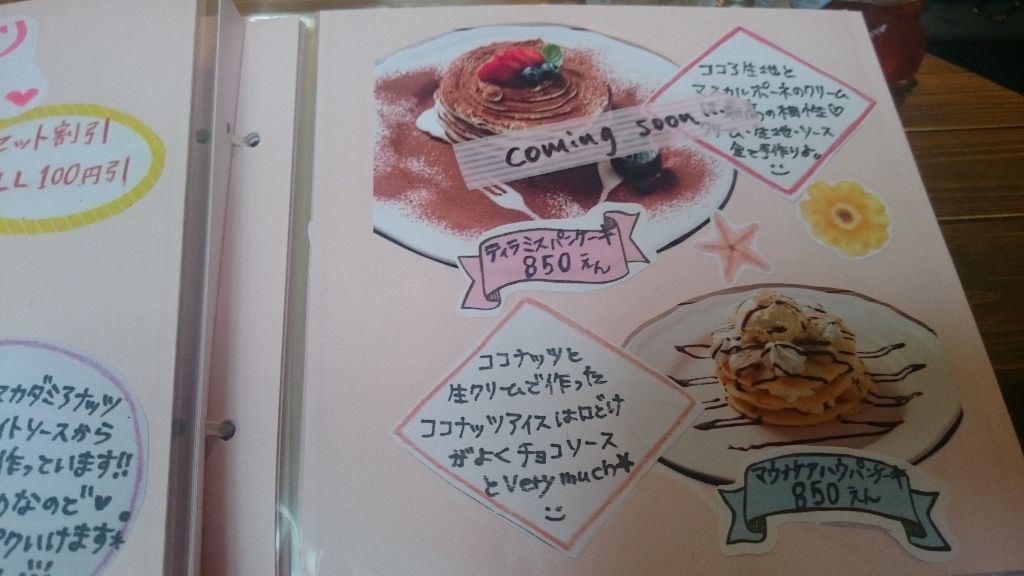 セット割引
LL 100円引
マカダミアナッツ
イトソースから
作っています!!
なのど♥。
いけます*
ココア生地と
マスカルポーネのクリーム
の相性♡
クリーム・生地・ソース
全て手作りよ。
coming soon...
ティラミスパンケーキ
850えん
ココナッツと
生クリームで作った
ココナッツアイスは口どけ
がよくチョコソース
とVery much★
マウナケアハウパンケーキ
850えん